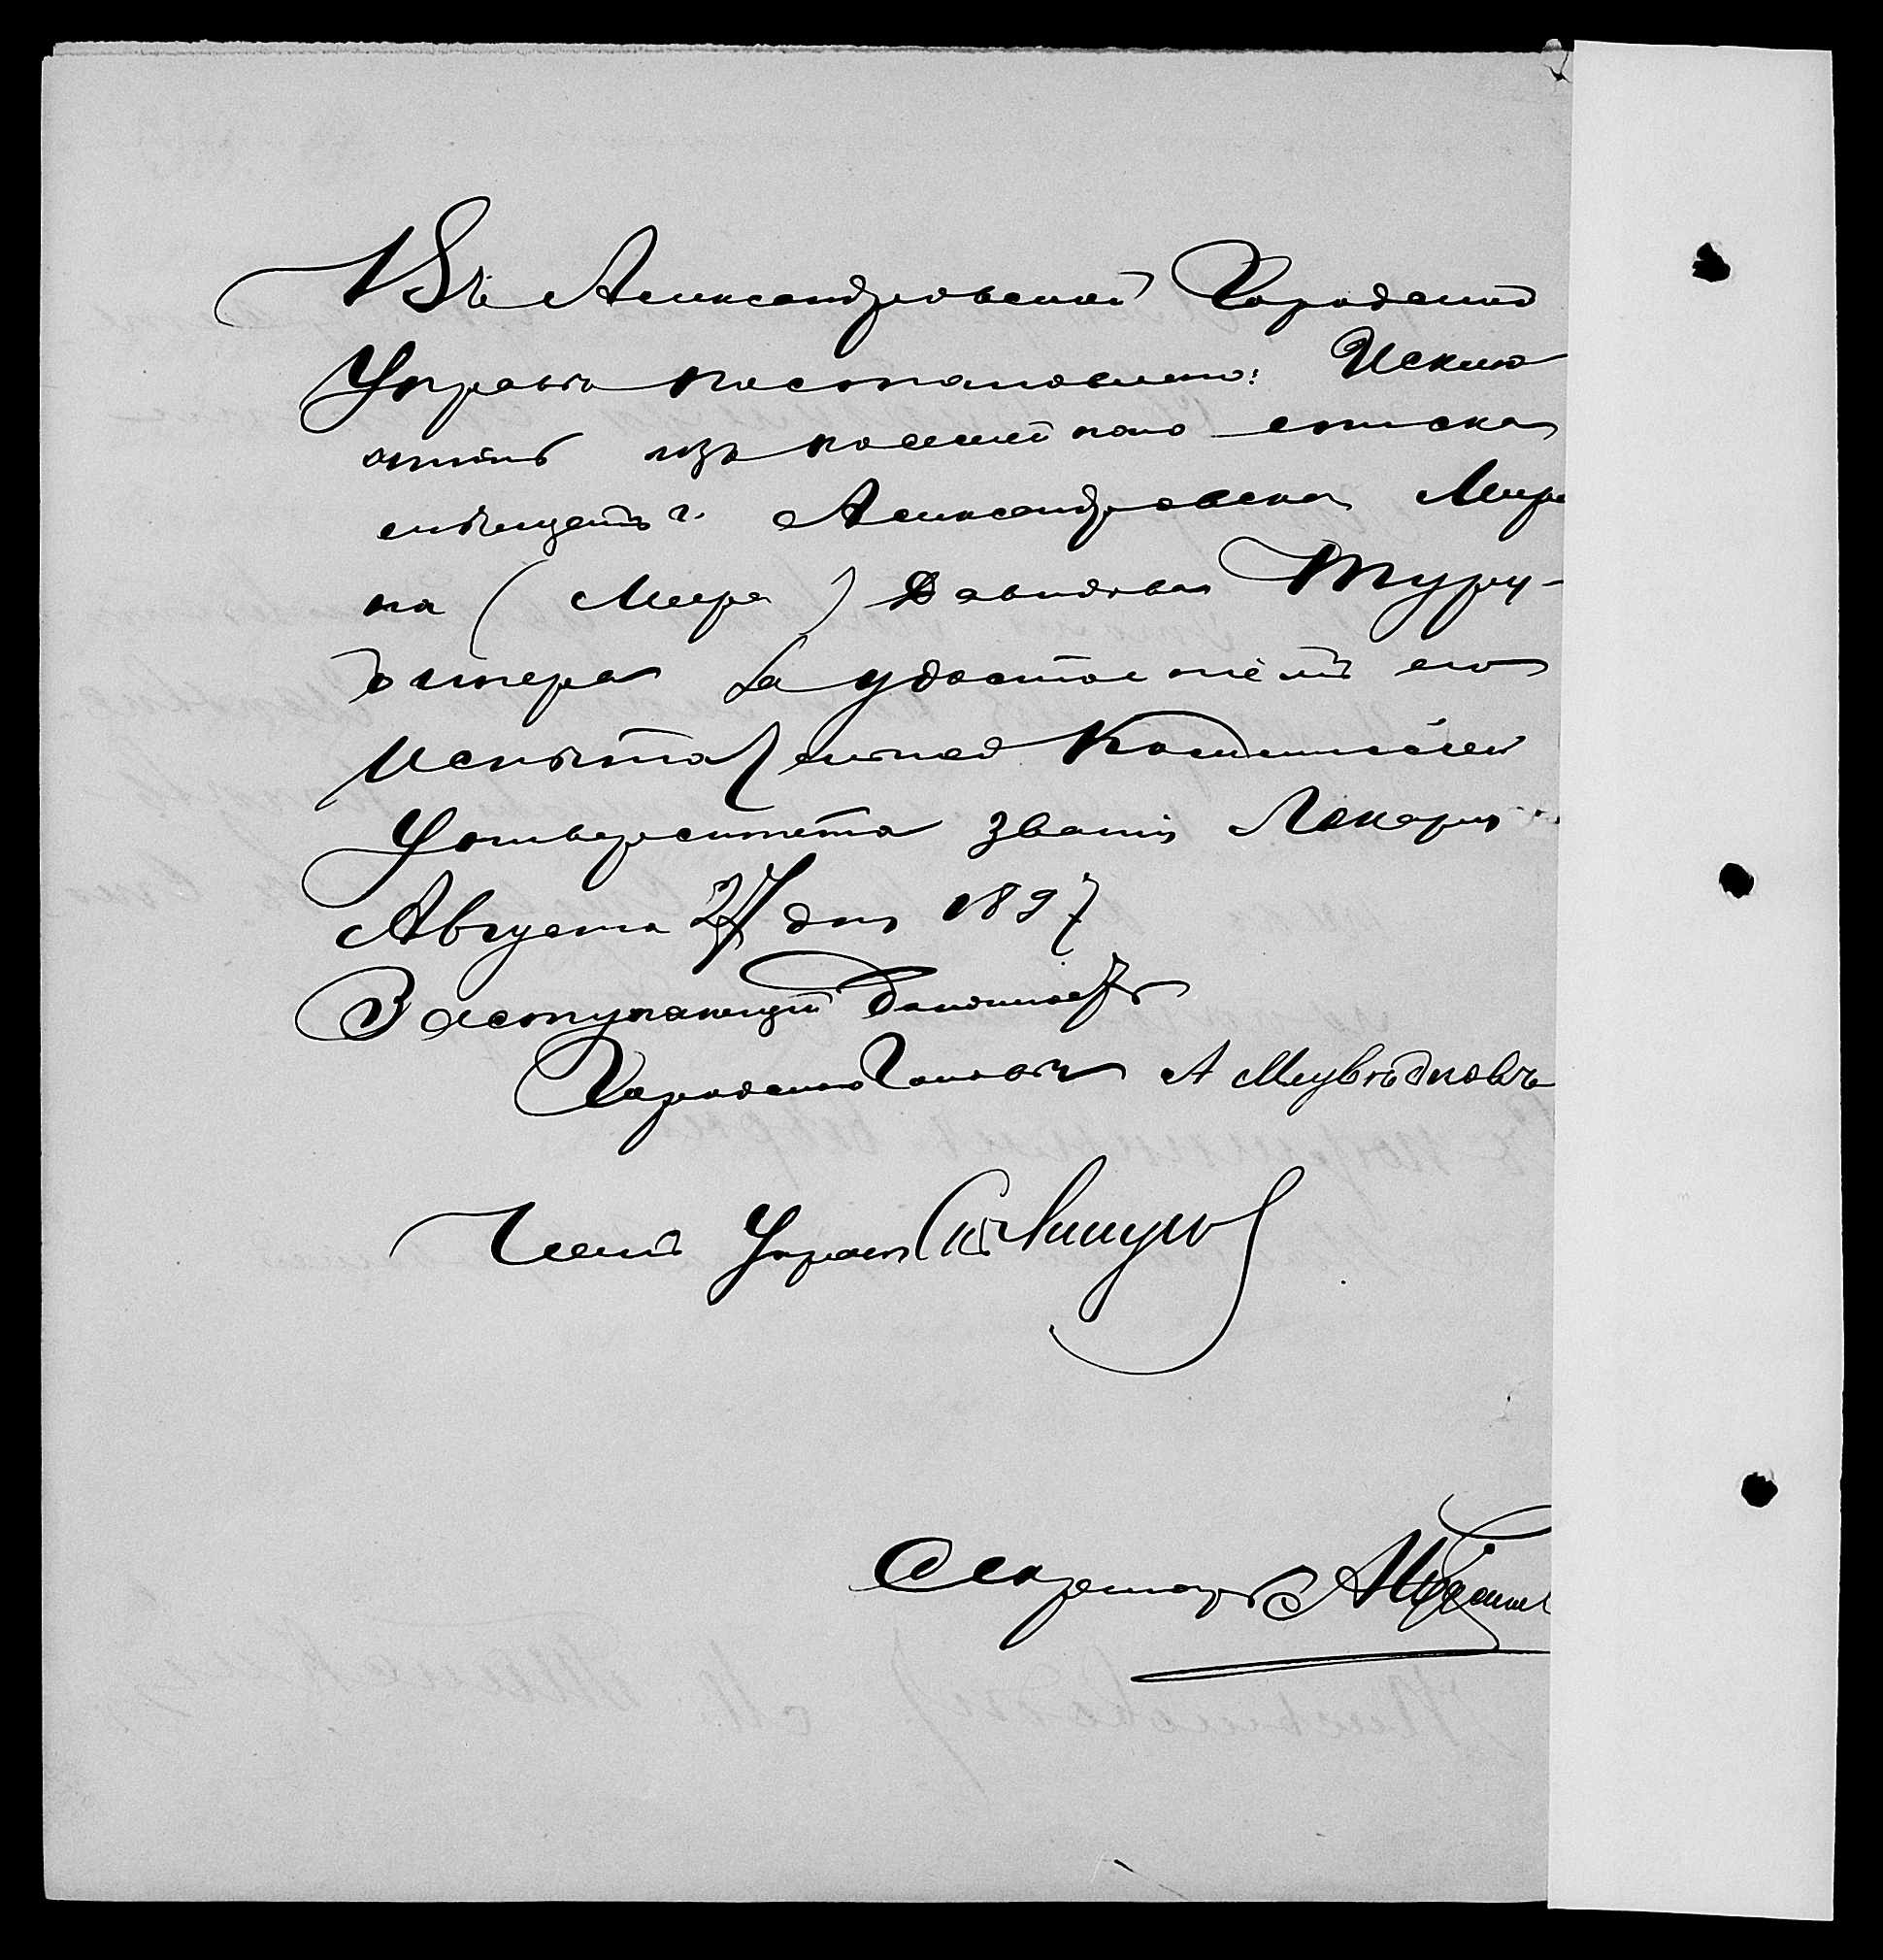 Въ Александровской Городской
Управѣ постановлено: Исклю
чить изъ посемейнаго списка
мѣщанъ г. Александровска Меер
на (Меера) Давидова Туру-
винера за удостоеніемъ его
Испытательной Коммисіей
Университета званія Лекаря.
Августа 27 дня 1897
Заступающій должность
Городскаго Головы А Медвѣдковъ
Членъ Управы
Секретарь А